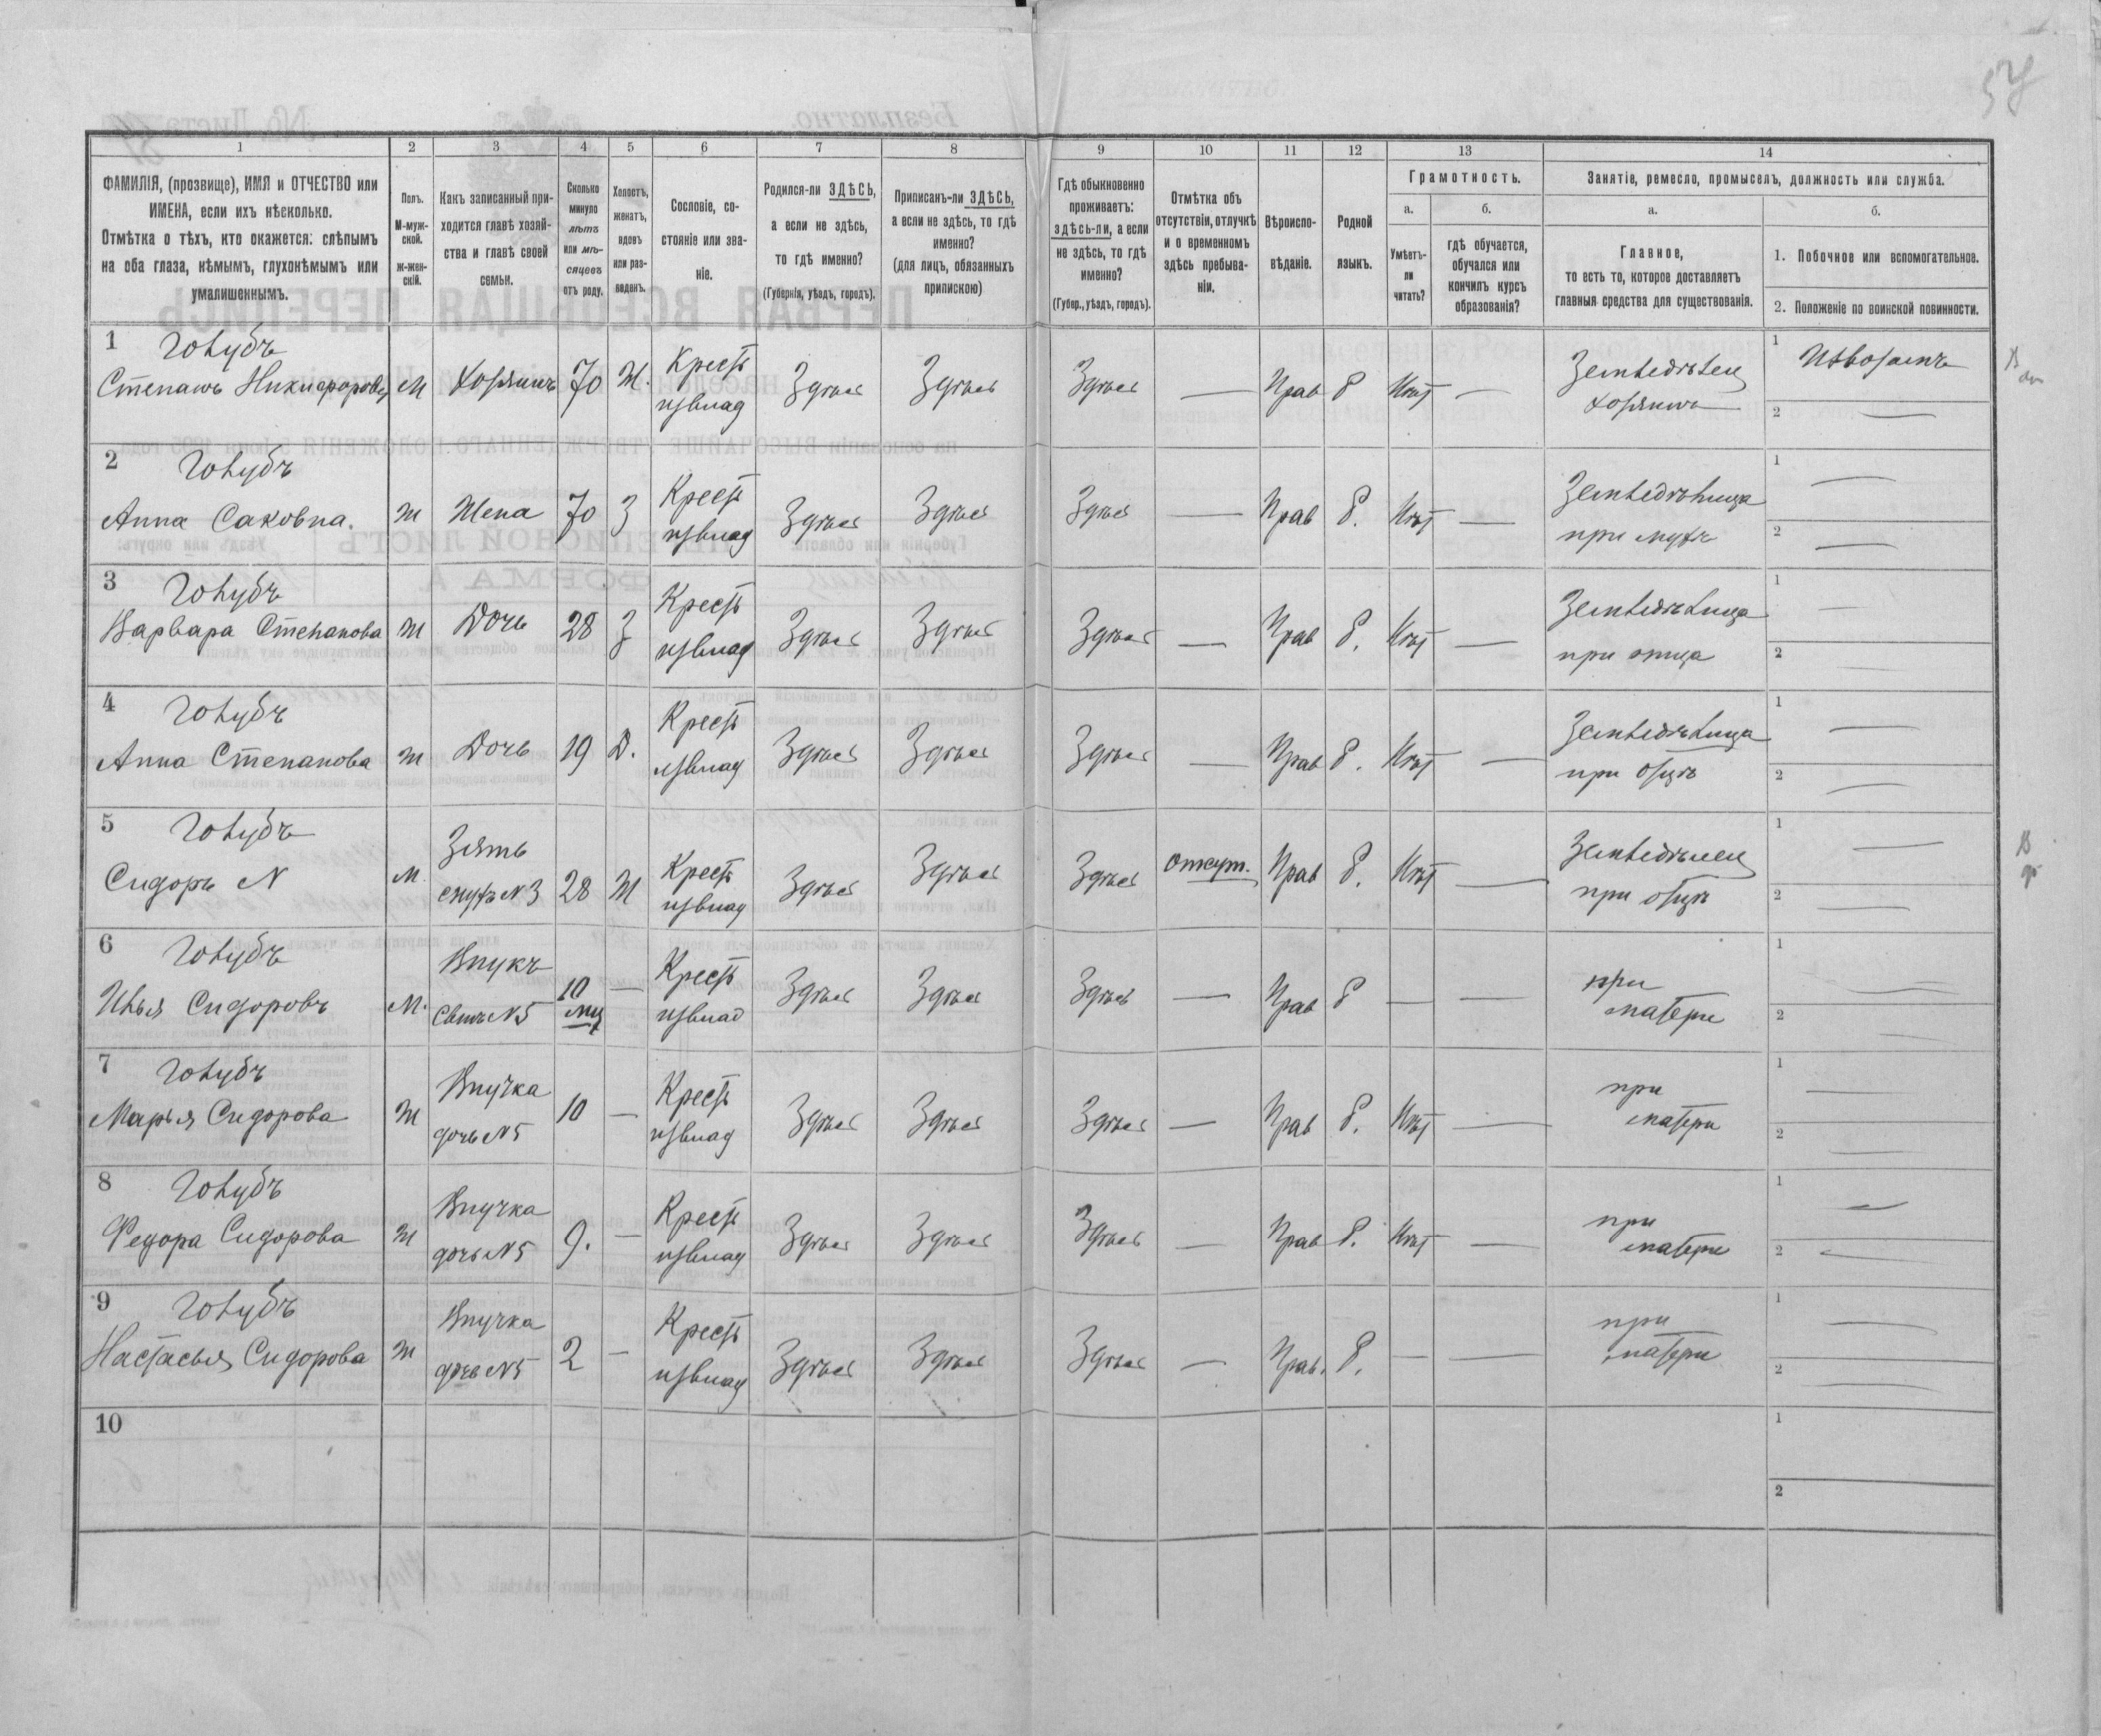 57
1 2 3 4 5 6 7 8 9 10 11 12 13 14
ФАМИЛІЯ, (прозвище), ИМЯ и ОТЧЕСТВО или ИМЕНА, если ихъ нѣсколько.
Отмѣтка о тѣхъ, кто окажется: слѣпымъ на оба глаза, нѣмымъ, глухонѣмымъ или умалишеннымъ.
Полъ. М-мужской. ж-женскій.
Какъ записанный приходится главѣ хозяйства и главѣ своей семьи.
Сколько минуло лѣтъ или мѣсяцевъ отъ роду.
Холостъ, женатъ, вдовъ или разведенъ.
Сословіе, состояніе или званіе.
Родился-ли ЗДѢСЬ, а если не здѣсь, то гдѣ именно?
(Губернія, уѣздъ, городъ).
Приписанъ-ли ЗДѢСЬ, а если не здѣсь, то гдѣ именно?
(для лицъ, обязанныхъ припискою)
Гдѣ обыкновенно проживаетъ: здѣсь-ли, а если не здѣсь, то гдѣ именно?
(Губер., уѣздъ, городъ).
Отмѣтка объ отсутствіи, отлучкѣ и о временномъ здѣсь пребываніи.
Вѣроисповѣданіе.
Родной языкъ.
Грамотность.
а. Умѣетъ-ли читать?
б. гдѣ обучается, обучался или кончилъ курсъ образованія?
Занятіе, ремесло, промыселъ, должность или служба.
а. Главное, то есть то, которое доставляетъ главныя средства для существованія.
б.
1. Побочное или вспомогательное.
2. Положеніе по воинской повинности.
1 Голубъ
Степанъ Никифоровъ М Хозяинъ 70 Ж. Крест извлад Здѣсь Здѣсь Здѣсь — Прав Р Нѣт — Земледѣлец хозяинъ 1 Извозъ 2 —
2 Голубъ
Анна Саковна. Ж Жена 70 З Крест извлад Здѣсь Здѣсь Здѣсь — Прав Р. Нѣт — Земледѣлица при мужѣ 1 — 2 —
3 Голубъ
Варвара Степанова Ж Дочь 28 З Крест извлад Здѣсь Здѣсь Здѣсь — Прав Р. Нѣт — Земледѣлица при отца 1 — 2 —
4 Голубъ
Анна Степанова Ж Дочь 19 Д. Крест извлад Здѣсь Здѣсь Здѣсь — Прав Р. Нѣт — Земледѣлица при отцѣ 1 — 2 —
5 Голубъ
Сидоръ N М. Зять мужъ N3 28 Ж Крест извлад Здѣсь Здѣсь Здѣсь Отсут. Прав Р. Нѣт — Земледѣлец при отцѣ 1 — 2 —
6 Голубъ
Илья Сидоровъ М. Внукъ Сынъ N5 10 мц — Крест извлад Здѣсь Здѣсь Здѣсь — Прав Р — — при матери 1 — 2 —
7 Голубъ
Марья Сидорова Ж Внучка дочь N5 10 — Крест извлад Здѣсь Здѣсь Здѣсь — Прав Р. Нѣт — при матери 1 — 2 —
8 Голубъ
Федора Сидорова Ж Внучка дочь N5 9. — Крест извлад Здѣсь Здѣсь Здѣсь — Прав Р. Нѣт — при матери 1 — 2 —
9 Голубъ
Настасья Сидорова Ж Внучка дочь N5 2 — Крест извлад Здѣсь Здѣсь Здѣсь — Прав. Р. — — при матери 1 — 2 —
10 1 2